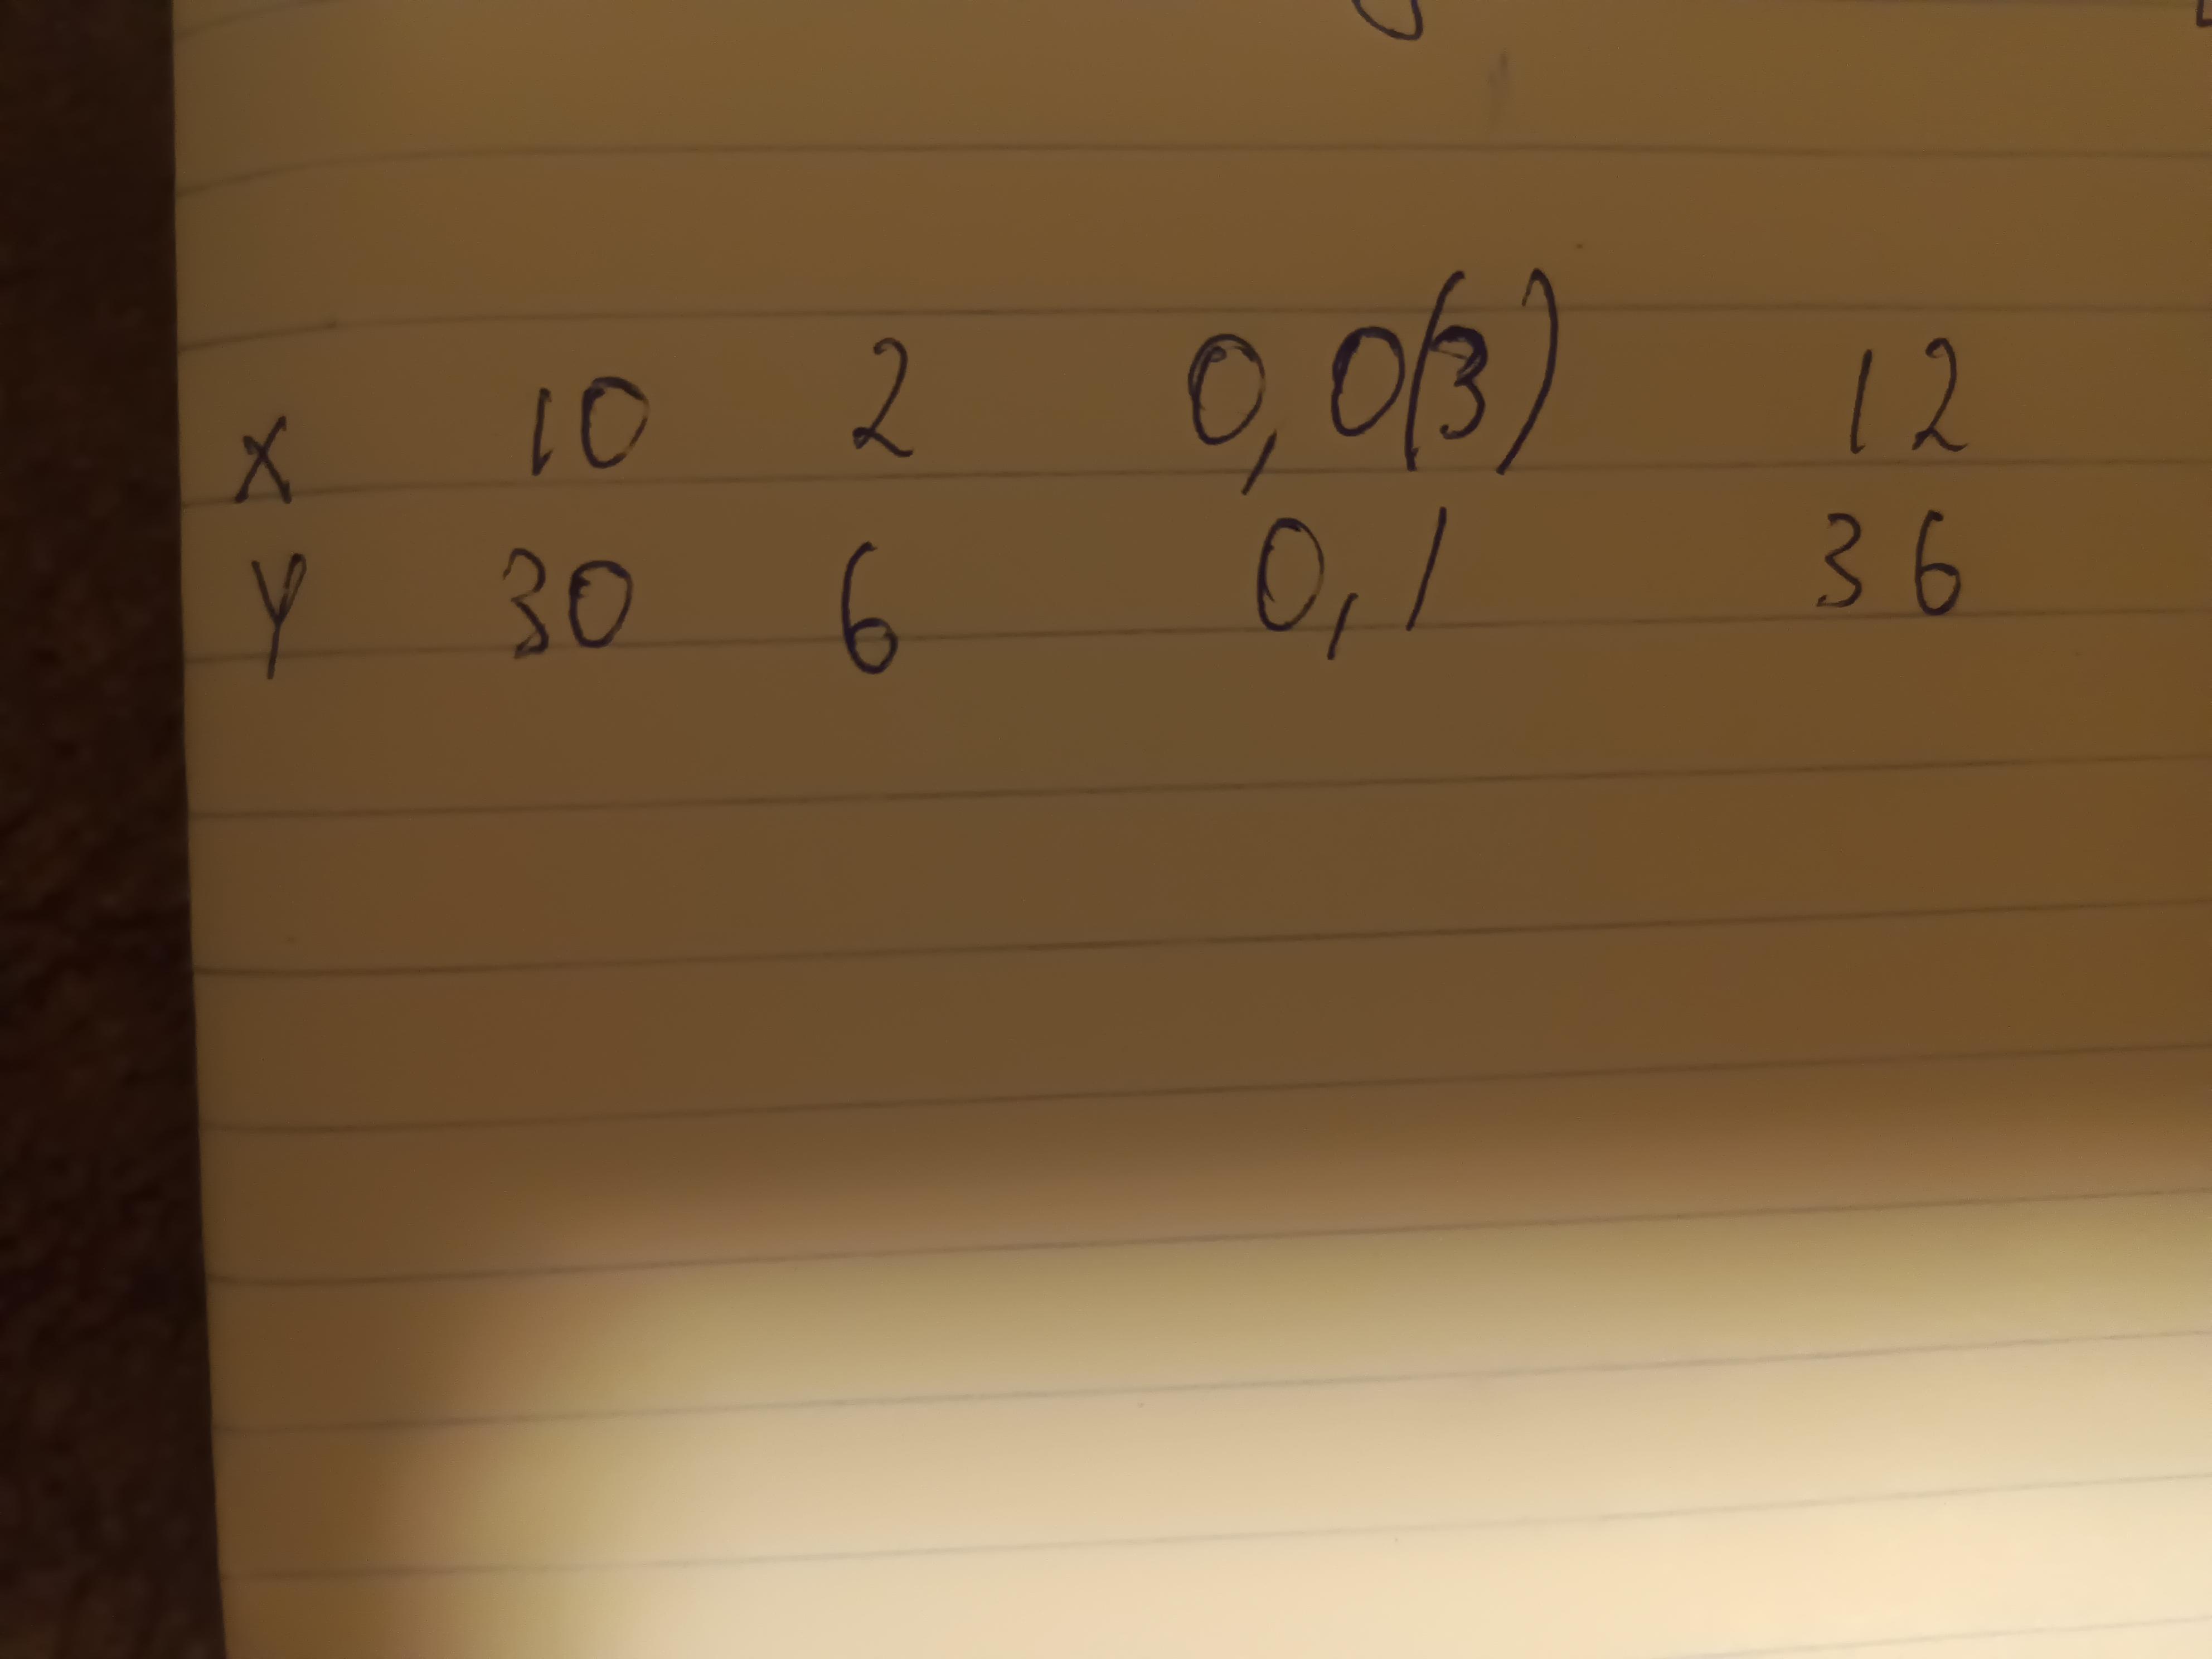 x 10 2 0,0(3) 12
y 30 6 0,1 36